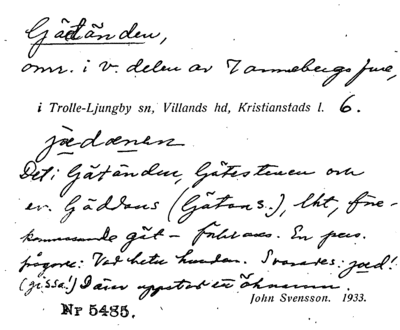 Gätänden,
omr. i v. delen av Tannebergs fure,
i Trolle-Ljungby sn, Villands hd, Kristianstads l. 6.
jædænen
Det i Gätänden, Gätestenen och
ev. Gäddans (Gätans.), lht, före-
kommande gät - förklaras. En pers.
frågade: Vad heter hunden. Svarades: jæd!
(gissa!) Därav uppstod ett öknamn.
John Svensson. 1933.
Nr 5485.